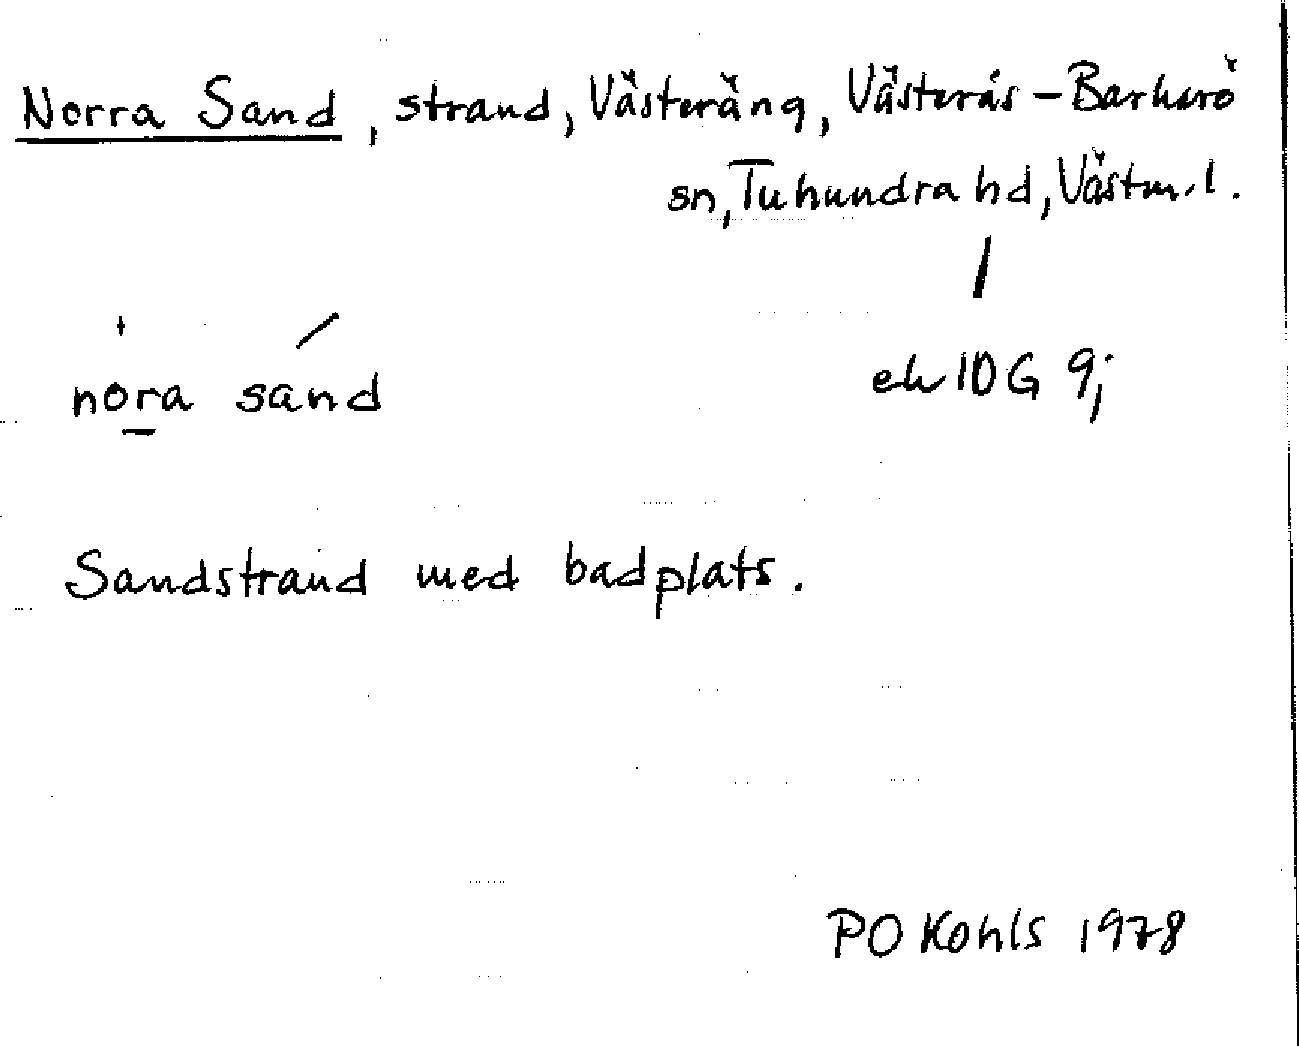 Norra Sand, strand, Västeräng, Västerås-Barkarö
sn, Tuhundra hd, Västm. l.
nora sand
ek 10G 9j
Sandstrand med badplats.
PO Kohls 1978